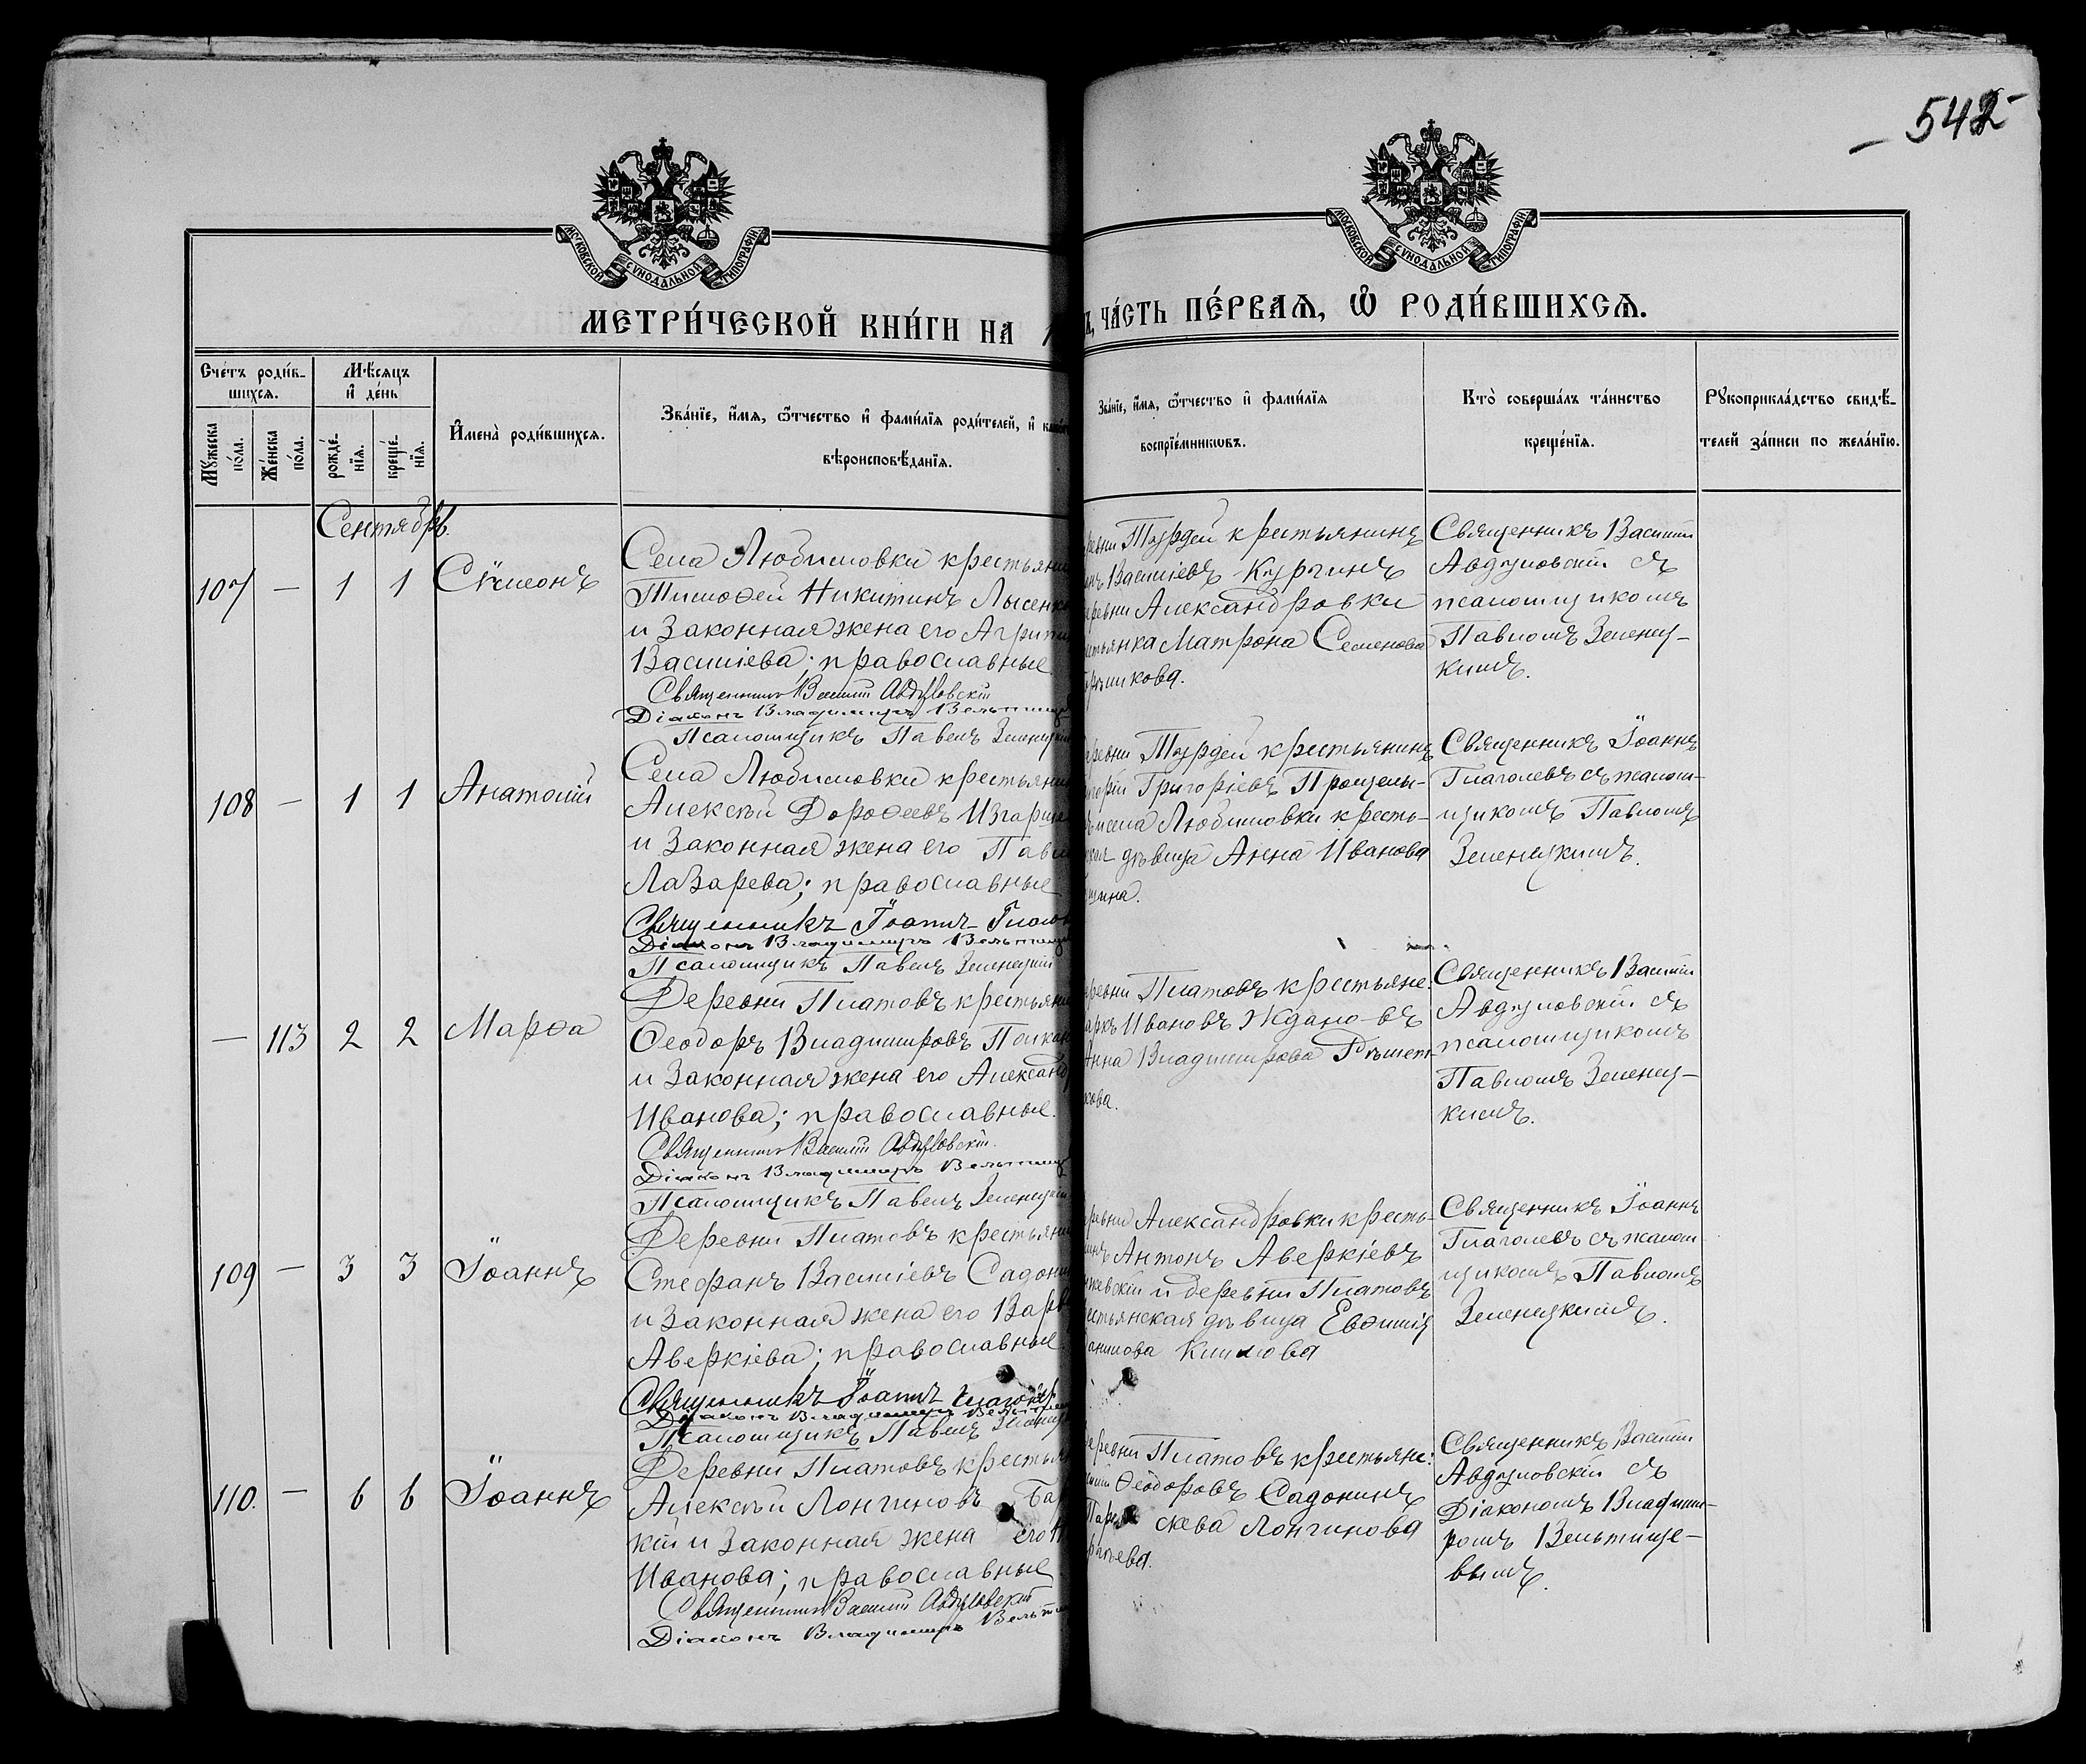 542
МОСКОВСКОЙ СУНОДАЛЬНОЙ ТИПОГРАФІИ
МОСКОВСКОЙ СУНОДАЛЬНОЙ ТИПОГРАФІИ
МЕТРИ́ЧЕСКОЙ КНИ́ГИ НА 1
ЧА́СТЬ ПЕ́РВАѦ, Ѿ РОДИ́ВШИХСѦ.
Сче́тъ роди́в-
шихсѧ.
Мѣ́сѧцъ
и҆ де́нь
Мꙋ́жеска
по́ла.
Же́нска
по́ла.
рожде́-
нїѧ.
креще́-
нїѧ.
И҆мена̀ роди́вшихсѧ.
Зва́нїе, и҆́мѧ, ѻ҆́тчество и҆ фами́лїѧ роди́телей, и҆
вѣроисповѣ́данїѧ.
Зва́нїе, и҆́мѧ, ѻ҆́тчество и҆ фами́лїѧ
воспрїе́мникѡвъ.
Кто̀ соверша́лъ та́инство
креще́нїѧ.
Рꙋкоприкла́дство свидѣ́-
телей за́писи по жела́нїю.
Сентябрь.
107 — 1 1 Сѵмеонъ
Села Любимовки крестьяни
Тимоѳей Никитинъ Лысенк
и законная жена его Агрип
Василіева; православные
Священникъ Василій Авдуловскій
Діаконъ Владимиръ Вельтищ
Псаломщикъ Павелъ Зеленецкі
ревни Турдей крестьянинъ
Василіевъ Кургинъ
ревни Александровки
стьянка Матрона Семенова
никова.
Священникъ Василій
Авдуловскій съ
псаломщикомъ
Павломъ Зеленец-
кимъ.
108 — 1 1 Анатолій
Села Любимовки крестьяни
Алексѣй Дороѳеевъ Изгарше
и законная жена его Павл
Лазарева; православные
Священникъ Іоаннъ Глаго
Діаконъ Владимиръ Вельтище
Псаломщикъ Павелъ Зеленецкій
ревни Турдей крестьянинъ
Григоріевъ Процелы-
села Любимовки кресть-
дѣвица Анна Иванова
щина.
Священникъ Іоаннъ
Глаголевъ съ псалом-
щикомъ Павломъ
Зеленецкимъ.
— 113 2 2 Марѳа
Деревни Платовъ крестьяни
Ѳеодоръ Владимировъ Полкан
и законная жена его Александ
Иванова; православные.
Священникъ Василій Авдуловскій.
Діаконъ Владимиръ Вельтищ
Псаломщикъ Павелъ Зеленецкі
ревни Платовъ крестьяне:
аркъ Ивановъ Ждано-въ
Анна Владимирова Рѣшет-
кова.
Священникъ Василій
Авдуловскій съ
псаломщикомъ
Павломъ Зеленец-
кимъ.
109 — 3 3 Іоаннъ
Деревни Платовъ крестьяни
Стефанъ Василіевъ Садони
и законная жена его Варв
Аверкіева; православные.
Священникъ Іоаннъ Глаголев
Діаконъ Владимиръ Вельтищ
Псаломщикъ Павелъ Зеленец
ревни Александровки кресть-
Антонъ Аверкіевъ
жевскій и деревни Платовъ
естьянская дѣвица Евѳимія
Климова
Священникъ Іоаннъ
Глаголевъ съ псалом-
щикомъ Павломъ
Зеленецкимъ.
110. — 6 6 Іоаннъ
Деревни Платовъ крестья
Алексѣй Лонгиновъ Ба
кій и законная жена его
Иванова; православные
Священникъ Василій Авдуловскій
Діаконъ Владимиръ Вельти
ревни Платовъ крестьяне:
Ѳеодоровъ Садонинъ
Параскева Лонгинова
Священникъ Василій
Авдуловскій съ
Діакономъ Владими-
ромъ Вельтище-
вымъ.